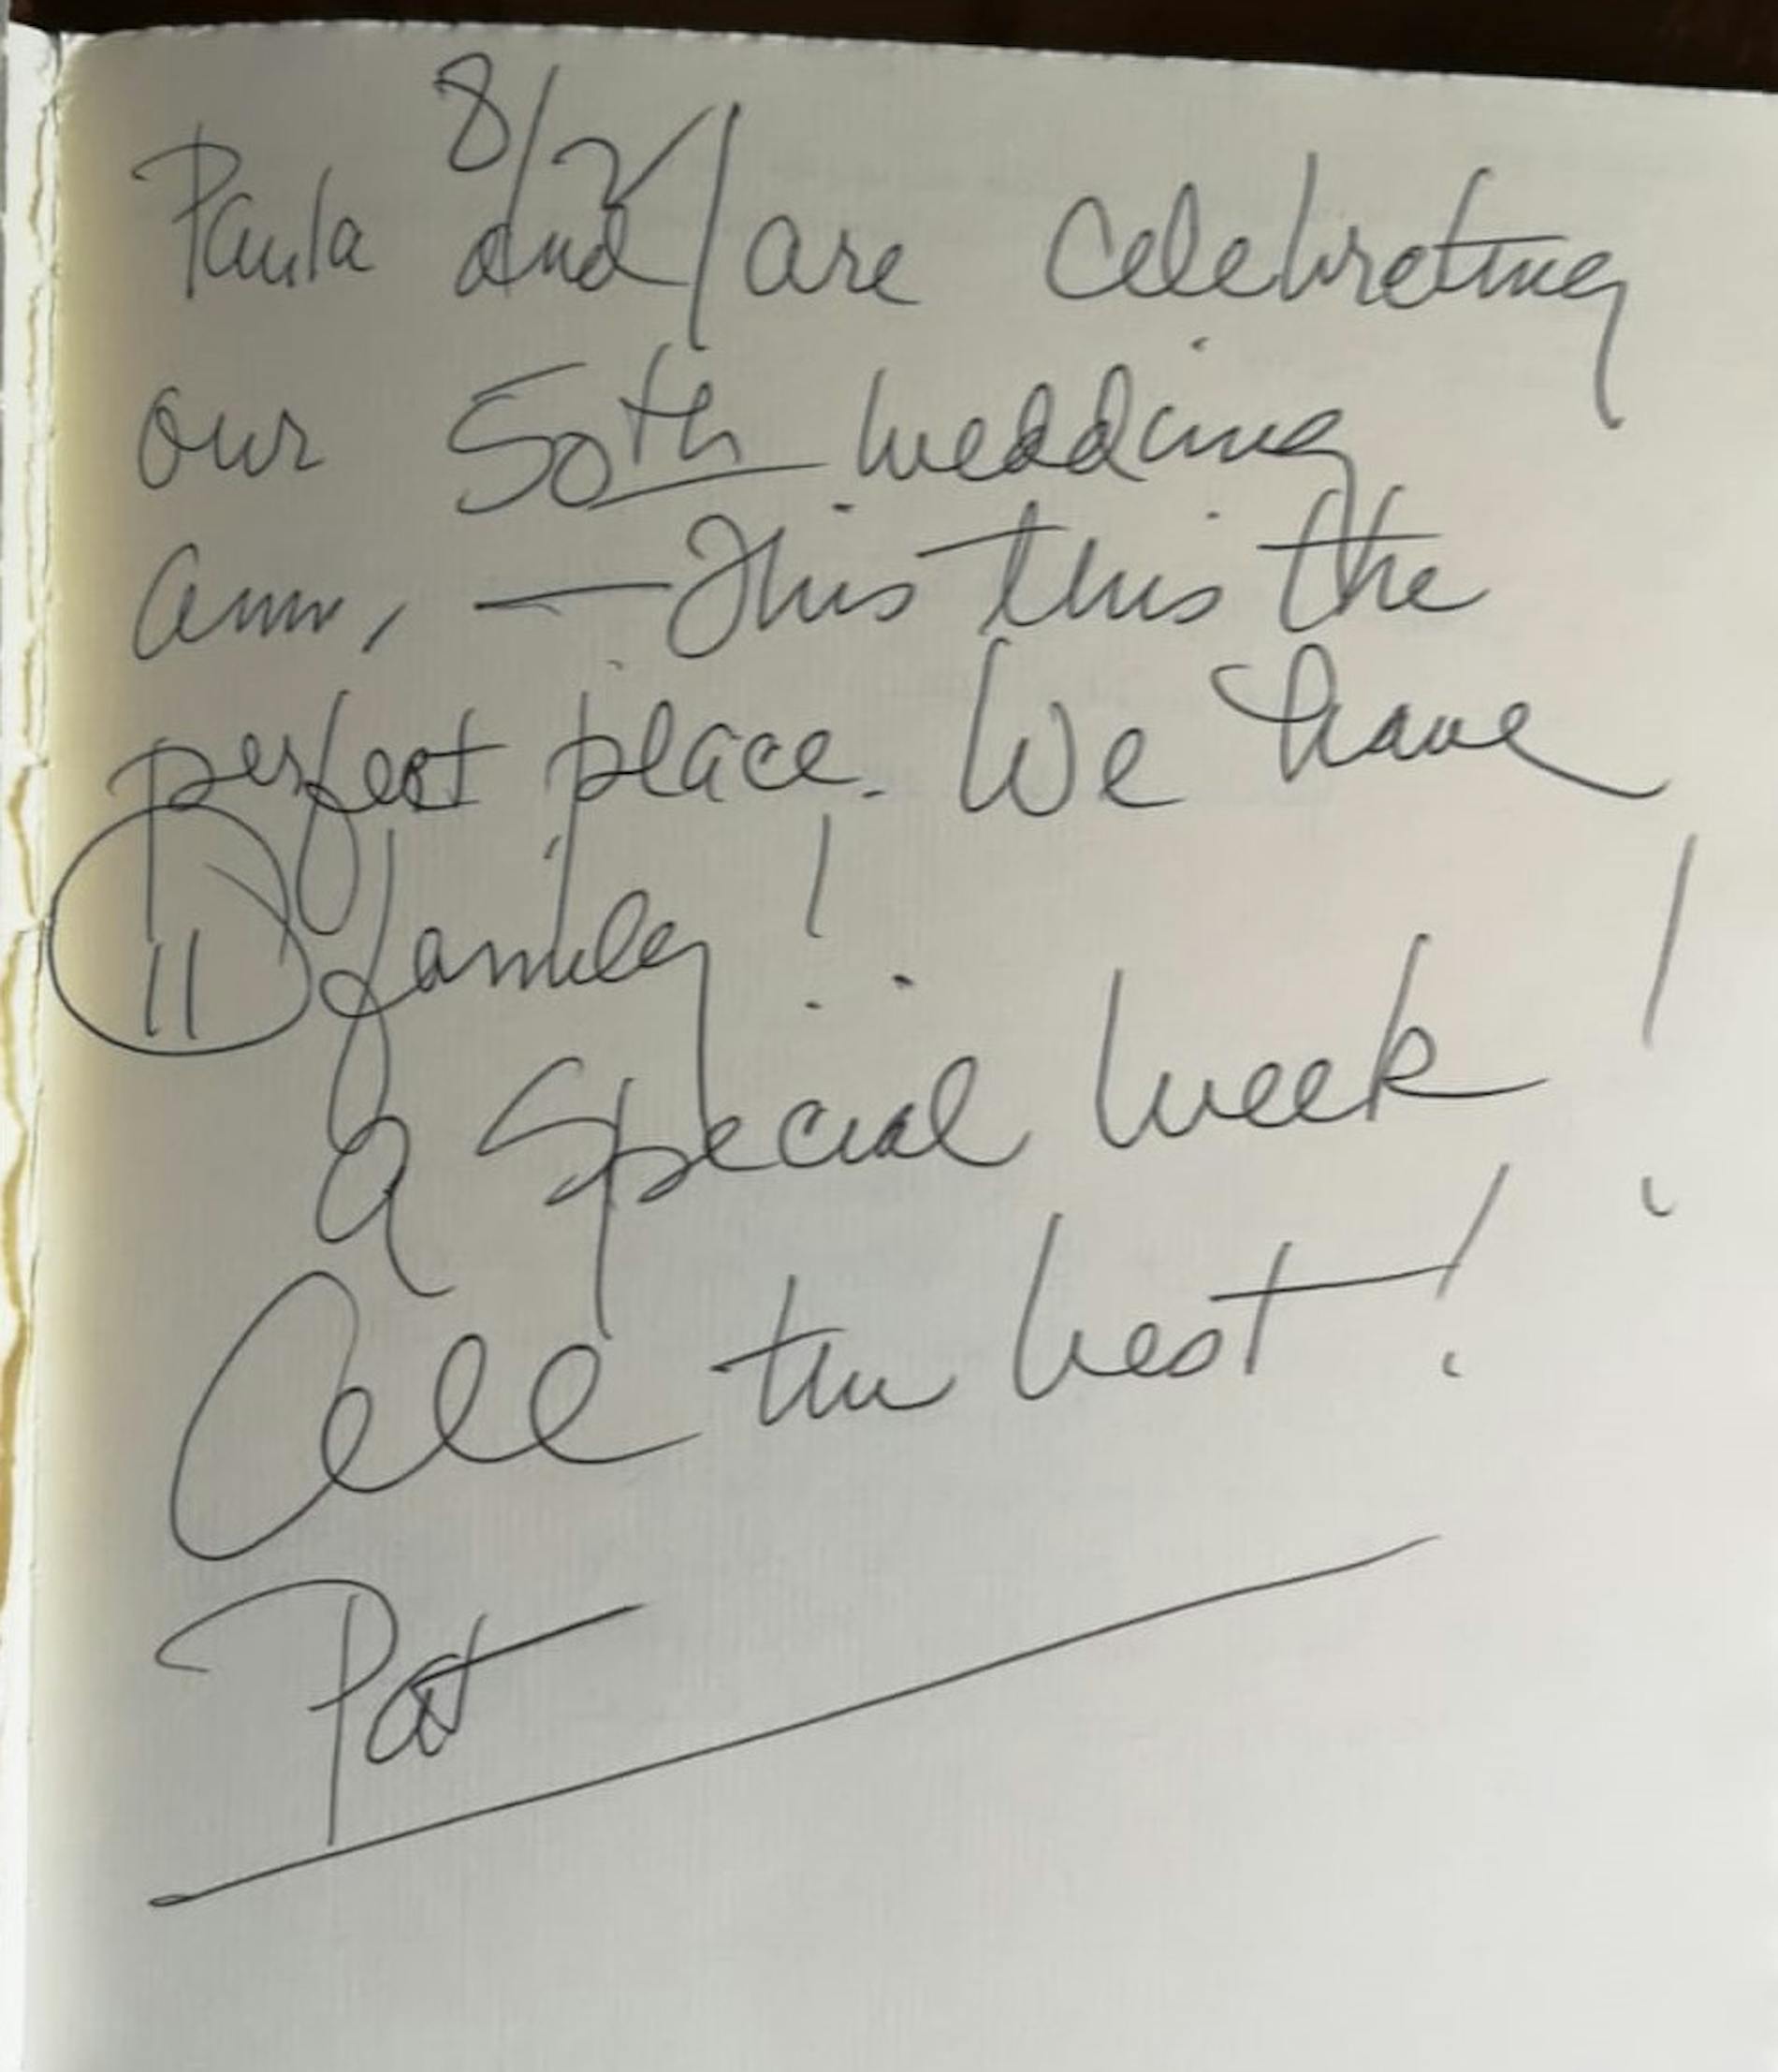 8/2
Paula and I are celebrating
our 50th wedding
ann, — This this the
perfect place. We have
11 family!
a special week!
All the best!
Pat